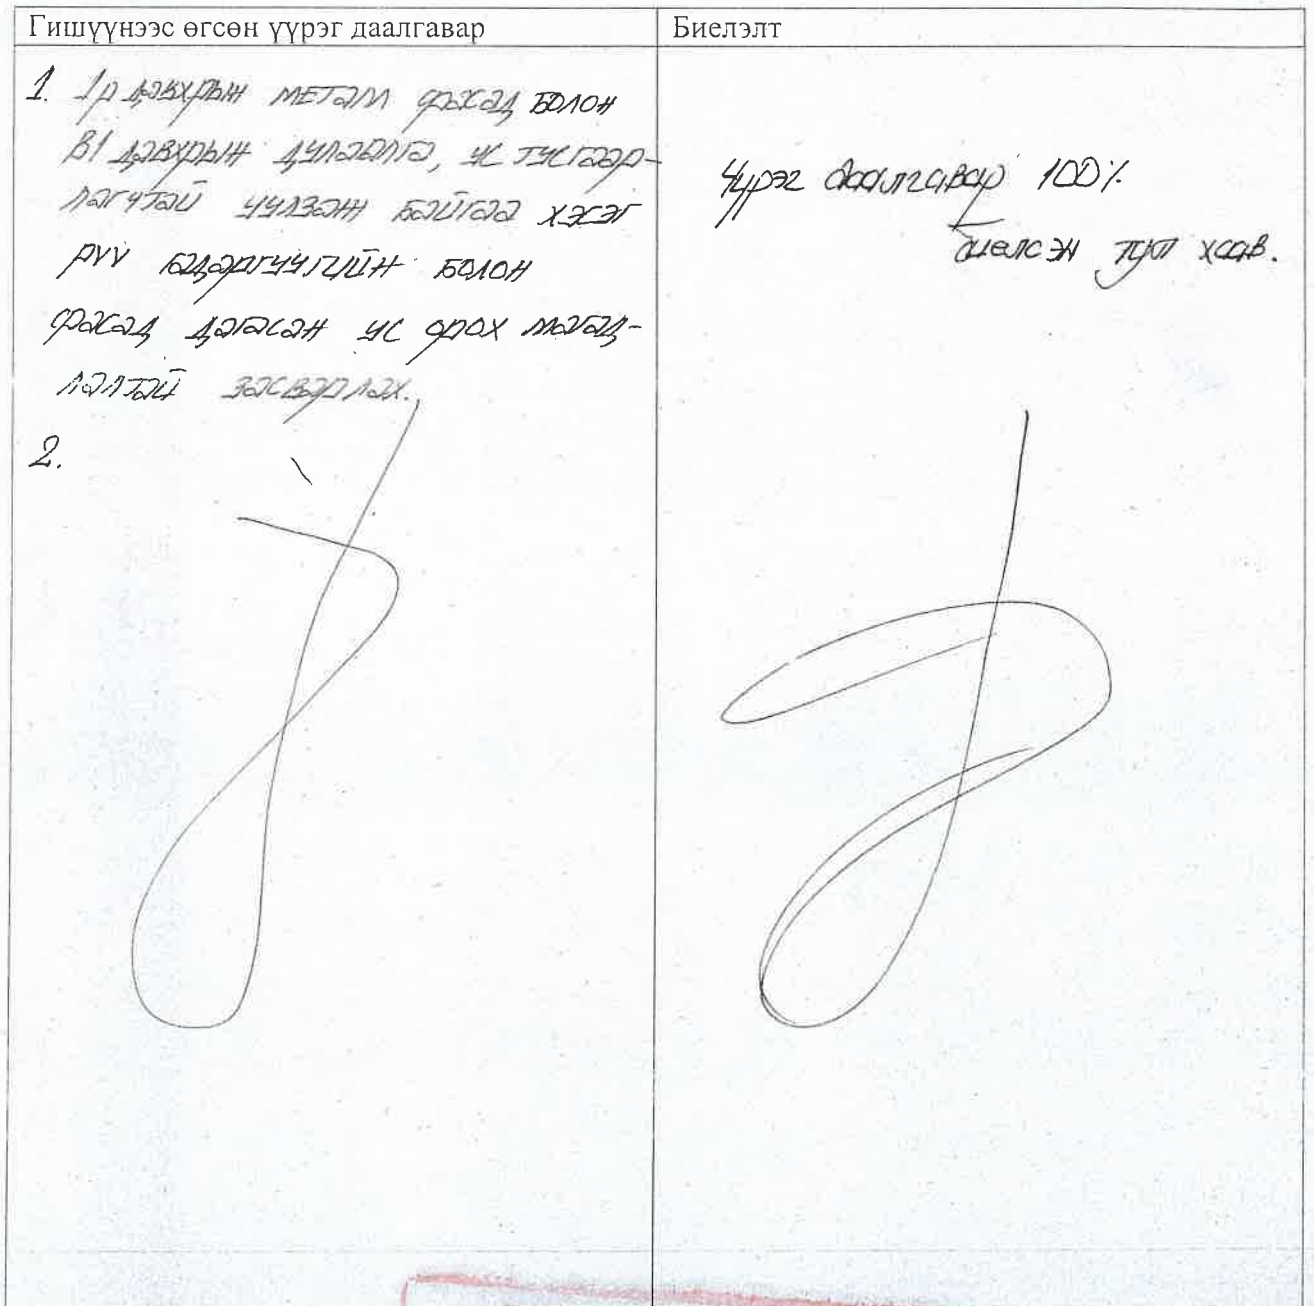 Гишүүнээс өгсөн үүрэг даалгавар
Биелэлт
1. 1р давхрын металл фасад болон
B1 давхрын дулаалга, ус тусгаар-
лагчтай уулзаж байгаа хэсэг
рүү бадаргуугийн болон
фасад дагасан ус орох магад-
лалтай засварлах.
2.
Үүрэг даалгавар 100%
биелсэн тул хаав.